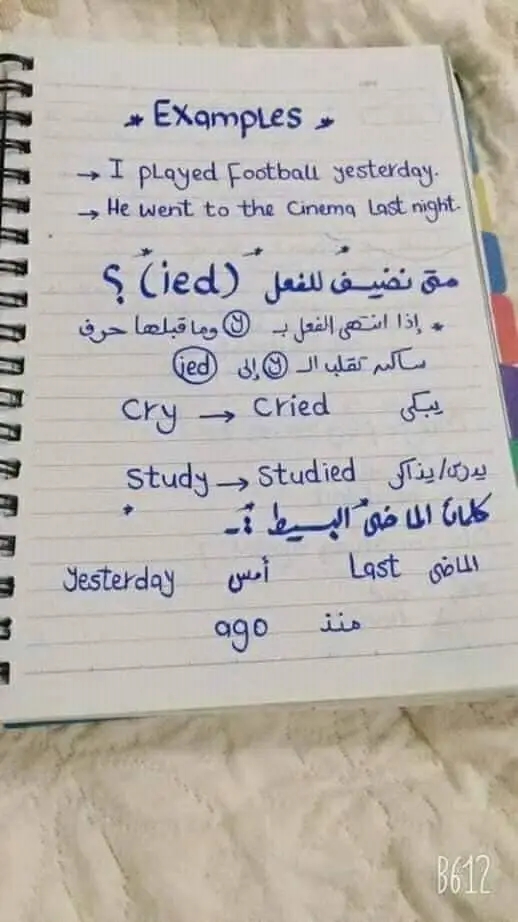 * Examples *
→ I played Football yesterday.
→ He went to the Cinema Last night.
متى نضيف للفعل (ied) ؟
* إذا انتهى الفعل بـ (y) وما قبلها حرف
ساكن تقلب الـ (y) إلى (ied)
Cry → Cried يبكى
Study → Studied يدرس/يذاكر
كلمات الماضى البسيط :-
Yesterday أمس Last الماضى
ago منذ
B612